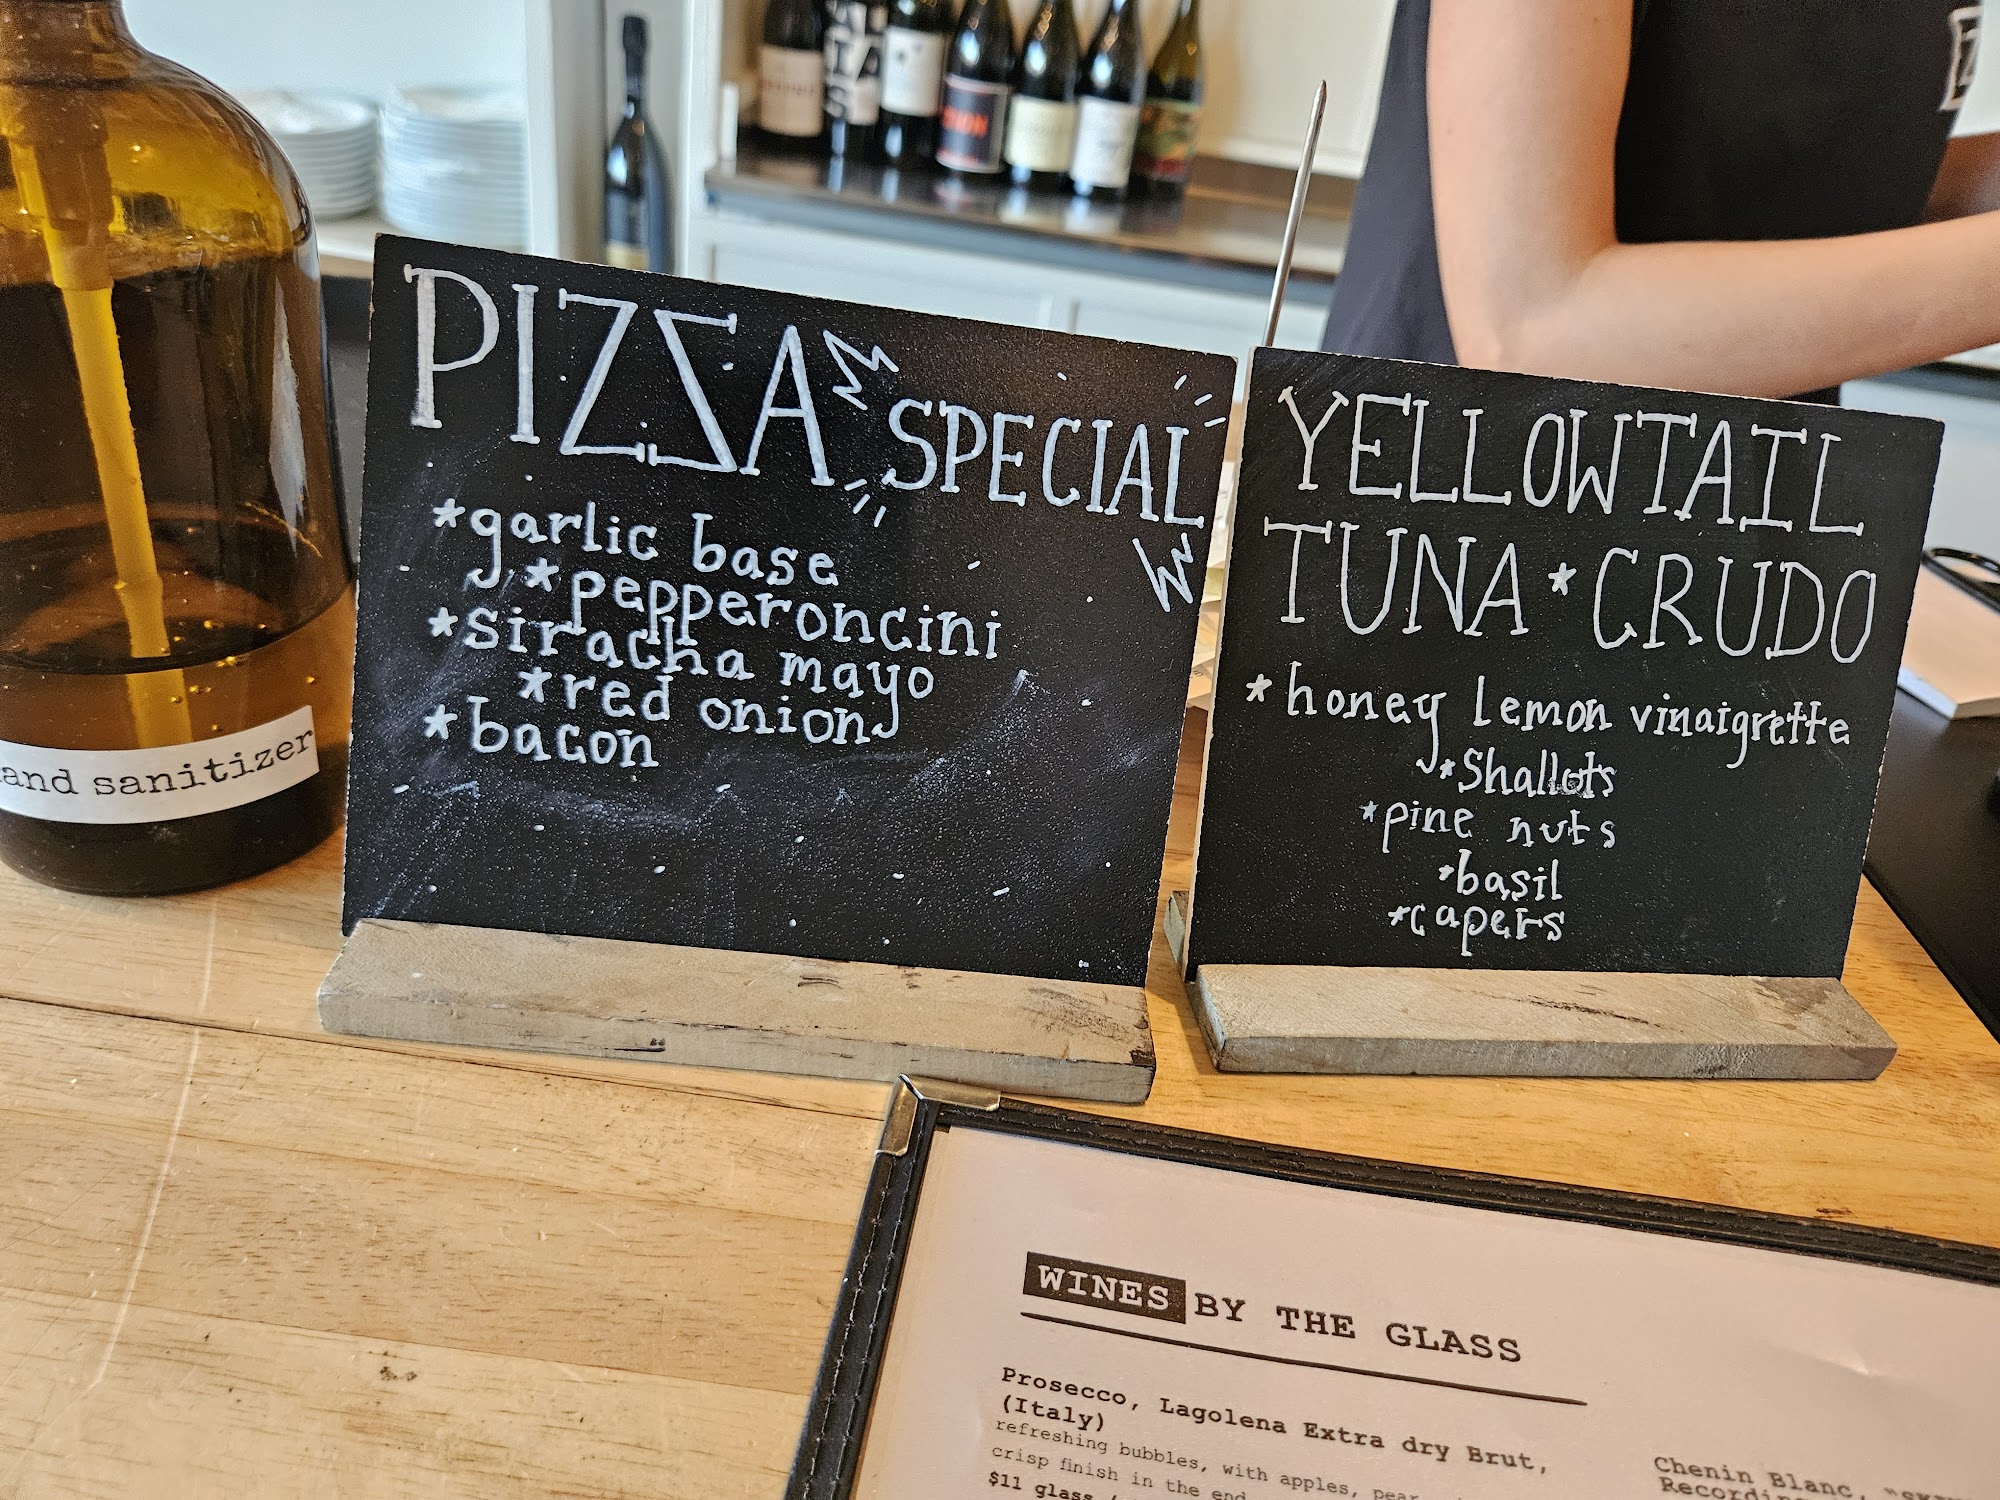 PIZZA SPECIAL
*garlic base
*pepperoncini
*siracha mayo
*red onion
*bacon
YELLOWTAIL
TUNA * CRUDO
*honey lemon vinaigrette
*Shallots
*pine nuts
*basil
*capers
and sanitizer
WINES BY THE GLASS
Prosecco, Lagolena Extra dry Brut,
(Italy)
refreshing bubbles, with apples, pear
crisp finish in the end
$11 glass
Chenin Blanc,